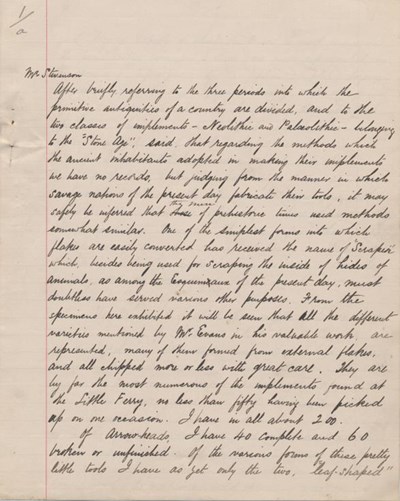 1/a
Mr Stevenson
After briefly referring to the three periods into which the
primitive antiquities of a country are divided, and to the
two classes of implements - Neolithic and Palæolithic - belonging
to the "Stone Age", said, that regarding the methods which
the ancient inhabitants adopted in making their implements
we have no records, but judging from the manner in which
savage nations of the present day fabricate their tools, it may
safely be inferred that those of prehistoric times used methods
somewhat similar. One of the simplest forms into which
flakes are easily converted has received the name of "Scraper"
which, besides being used for scraping the inside of hides of
animals, as among the Esquimaux of the present day, must
doubtless have served various other purposes. From the
specimens here exhibited it will be seen that all the different
varieties mentioned by Mr Evans in his valuable work, are
represented, many of them formed from external flakes,
and all chipped more or less with great care. They are
by far the most numerous of the implements found at
the Little Ferry, no less than fifty having been picked
up on one occasion. I have in all about 200.
Of Arrowheads, I have 40 complete and 60
broken or unfinished. Of the various forms of these pretty
little tools I have as yet only the two, "leaf-shaped"